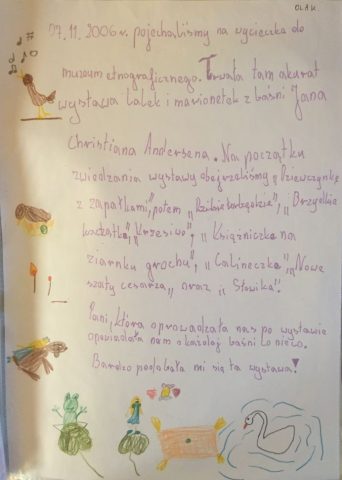 OLA K.
07.11.2006 r. pojechaliśmy na wycieczkę do
muzeum etnograficznego. Trwała tam akurat
wystawa lalek i marionetek z baśni Jana
Christiana Andersena. Na początku
zwiedzania wystawy obejrzeliśmy „Dziewczynkę
z zapałkami", potem „Dzikie łabędzie", „Brzydkie
kaczątko", „Krzesiwo", „Księżniczka na
ziarnku grochu", „Calineczka", „Nowe
szaty cesarza" oraz „Słowika".
Pani, która oprowadzała nas po wystawie
opowiadała nam o każdej baśni co nieco.
Bardzo podobała mi się ta wystawa!